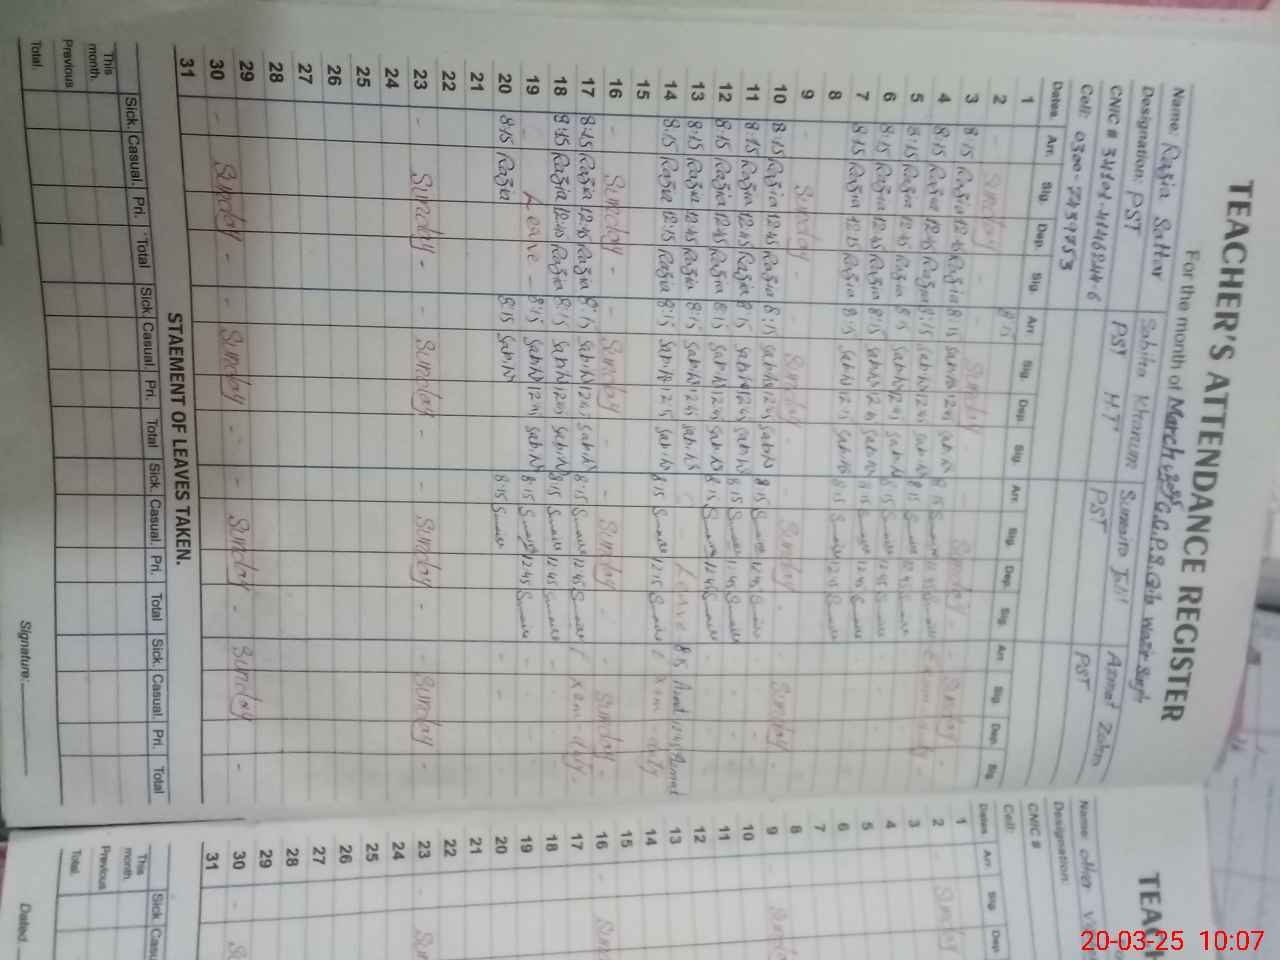 TEACHER'S ATTENDANCE REGISTER
For the month of March 2025 G.G.P.S
Name: Razia Sattar Sabiha Khanum Sumaira Azmat Zahra
Designation: PST PST H.T PST PST
CNIC #
Cell: 0300-7439753
Dates. Arr. Sig. Dep. Sig. Arr. Sig. Dep. Sig. Arr. Sig. Dep. Sig. Arr. Sig. Dep. Sig.
1 8:15
2 - Sunday - - Sunday - - Sunday - - Sunday -
3 8:15 Razia 12:45 Razia 8:15 Sabiha 12:45 Sabiha 8:15 Sumaira 12:45 Sumaira
4 8:15 Razia 12:45 Razia 8:15 Sabiha 12:45 Sabiha 8:15 Sumaira 12:45 Sumaira
5 8:15 Razia 12:45 Razia 8:15 Sabiha 12:45 Sabiha 8:15 Sumaira 12:45 Sumaira
6 8:15 Razia 12:45 Razia 8:15 Sabiha 12:45 Sabiha 8:15 Sumaira 12:45 Sumaira
7 8:15 Razia 12:15 Razia 8:15 Sabiha 12:15 Sabiha 8:15 Sumaira 12:15 Sumaira
8
9 - Sunday - - Sunday - - Sunday - - Sunday -
10 8:15 Razia 12:45 Razia 8:15 Sabiha 12:45 Sabiha 8:15 Sumaira 12:45 Sumaira
11 8:15 Razia 12:45 Razia 8:15 Sabiha 12:45 Sabiha 8:15 Sumaira 12:45 Sumaira
12 8:15 Razia 12:45 Razia 8:15 Sabiha 12:45 Sabiha 8:15 Sumaira 12:45 Sumaira
13 8:15 Razia 12:45 Razia 8:15 Sabiha 12:45 Sabiha - Leave - 8:15 Azmat 12:45 Azmat
14 8:15 Razia 12:15 Razia 8:15 Sabiha 12:15 Sabiha 8:15 Sumaira 12:15 Sumaira Exam duty
15
16 - Sunday - - Sunday - - Sunday - - Sunday -
17 8:15 Razia 12:45 Razia 8:15 Sabiha 12:45 Sabiha 8:15 Sumaira 12:45 Sumaira Exam duty -
18 8:15 Razia 12:45 Razia 8:15 Sabiha 12:45 Sabiha 8:15 Sumaira 12:45 Sumaira
19 - Leave - 8:15 Sabiha 12:45 Sabiha 8:15 Sumaira 12:45 Sumaira
20 8:15 Razia 8:15 Sabiha 8:15 Sumaira
21
22
23 - Sunday - - Sunday - - Sunday - - Sunday -
24
25
26
27
28
29
30 - Sunday - - Sunday - - Sunday - - Sunday -
31
STAEMENT OF LEAVES TAKEN.
Sick. Casual. Pri. Total Sick. Casual. Pri. Total Sick. Casual. Pri. Total Sick. Casual. Pri. Total
This month.
Previous
Total.
Signature:
TEACH
Name: other
Designation:
CNIC #
Cell:
Dates Arr. Sig. Dep.
1
2 - Sunday
3
4
5
6
7
8
9 - Sund
10
11
12
13
14
15
16 - Sund
17
18
19
20
21
22
23 - Sun
24
25
26
27
28
29
30 - Su
31
Sick. Casu
This month
Previous
Total.
Dated
20-03-25 10:07